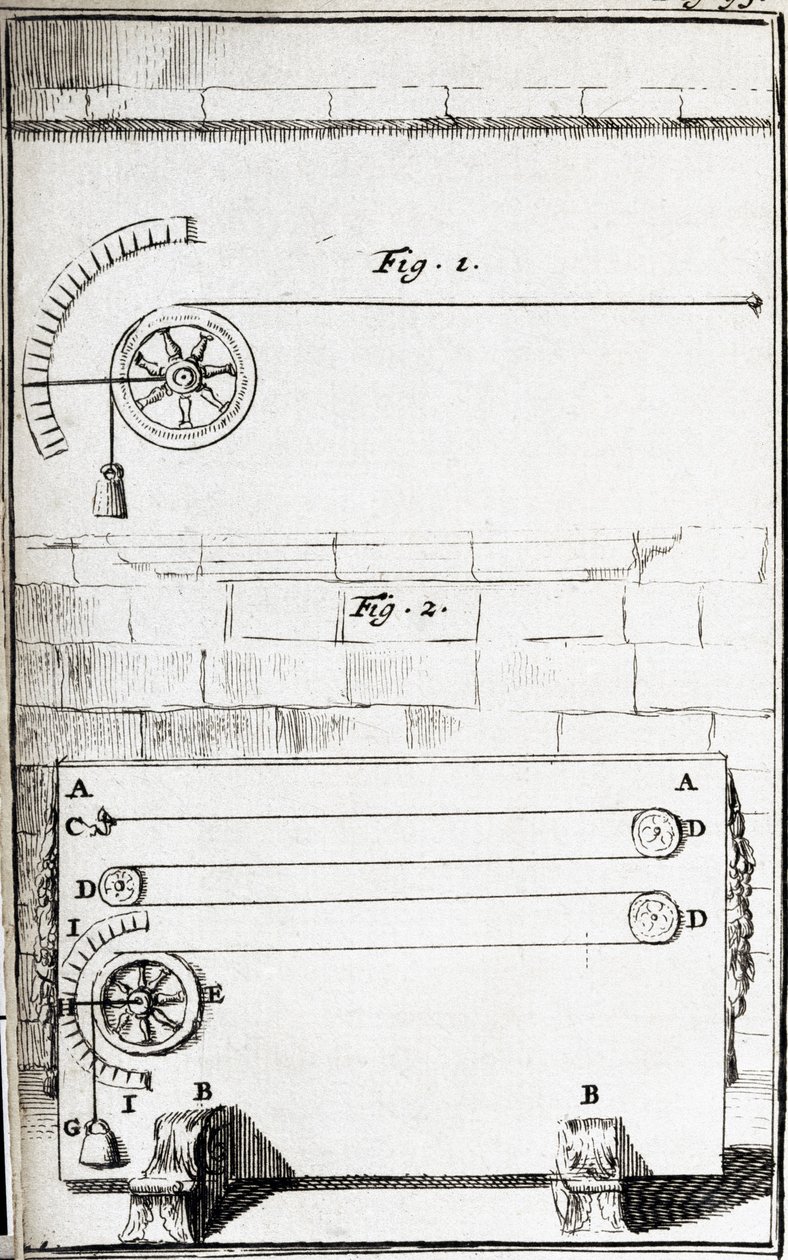 Fig. 1.
Fig. 2.
A A
C D
D
D
I
H E
I B B
G